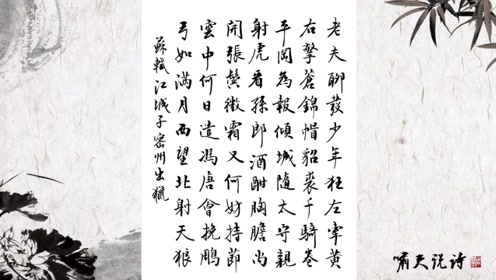 老夫聊發少年狂左牽黃
右擎蒼錦帽貂裘千騎卷
平岡為報傾城隨太守親
射虎看孫郎酒酣胸膽尚
開張鬢微霜又何妨持節
雲中何日遣馮唐會挽鵰
弓如滿月西望北射天狼
蘇軾江城子密州出獵
啸天说诗